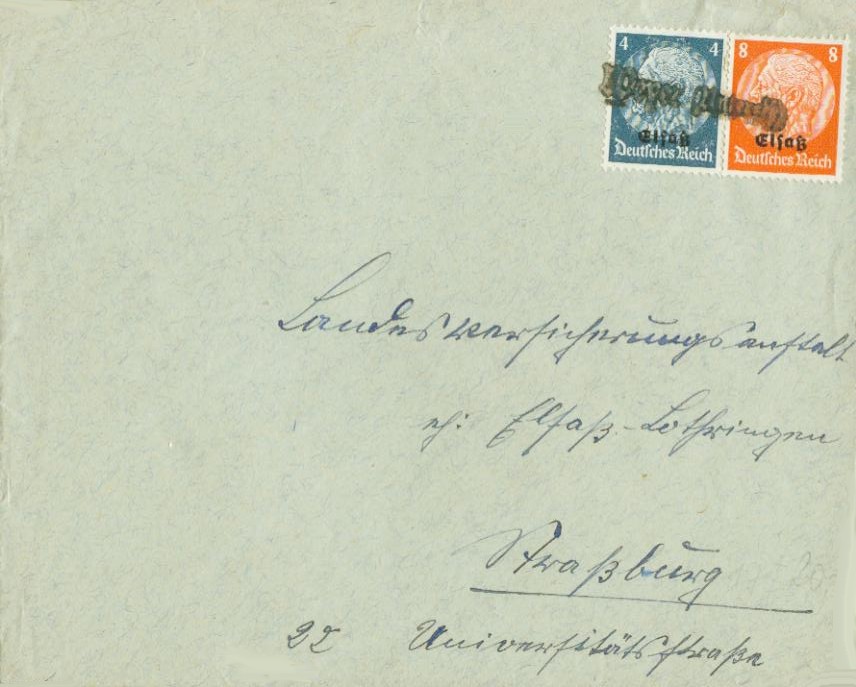 4 4 8 8
Elsaß Elsaß
Deutsches Reich Deutsches Reich
Landesversicherungsanstalt
Elsaß-Lothringen
Straßburg
Universitätsstraße